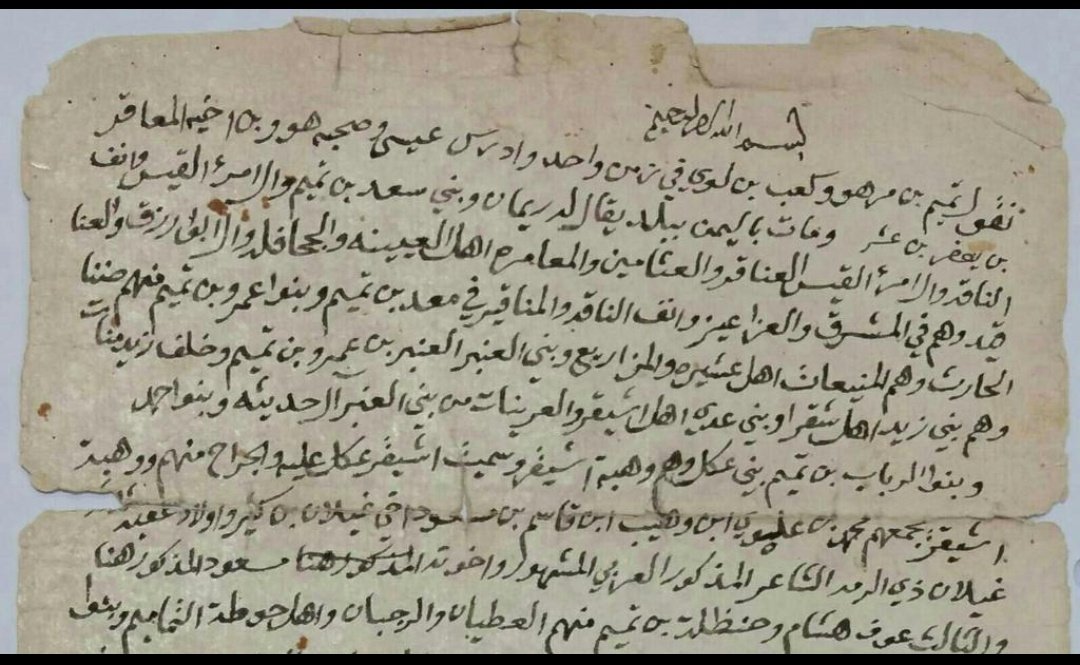 بسم الله الرحمن الرحيم
نقول تميم بن مر هو وكعب بن لوي في زمن واحد وادرس عيسى وصحبه هو وبن اخيه المعافر
بن يعفر بن عشر ومات باليمن ببلد يقال له ريمان وبني سعد بن تميم وال امرء القيس وانف
الناقه وال امرء القيس العناقر والعثامين والمعامره اهل العيينه والجحافله وال ابو رزق والعنا
قيد وهم في المشرق والعزاعيز وانف الناقه والمناقير في سعد بن تميم وبنوا عمرو بن تميم منهم
الحارث وهم المنيعات اهل عشيره والمزاريع وبني العنبر العنبر بن عمرو بن تميم وخلف زيد مناة
وهم بني زيد اهل شقرا وبني عدي اهل اشيقر والعرينات من بني العنبر ال حديثه وبنوا حمد
وبنوا الرباب بن تميم بني عكل وهم وهبة اشيقر وسميت اشيقر عكل عليه والجراح منهم ووهبة
اشيقر يجمعهم محمد بن علوي ابن وهيب ابن قاسم بن مسعود اخي غيلان بن كثير واولاد عقبة
غيلان ذي الرمه الشاعر المذكور العربي المشهور واخوته المذكور هنا مسعود المذكور هنا
والثالث عوف هشام وحنظلة بن تميم منهم العطيان والرجبان واهل حوطة التماميم وبنوا